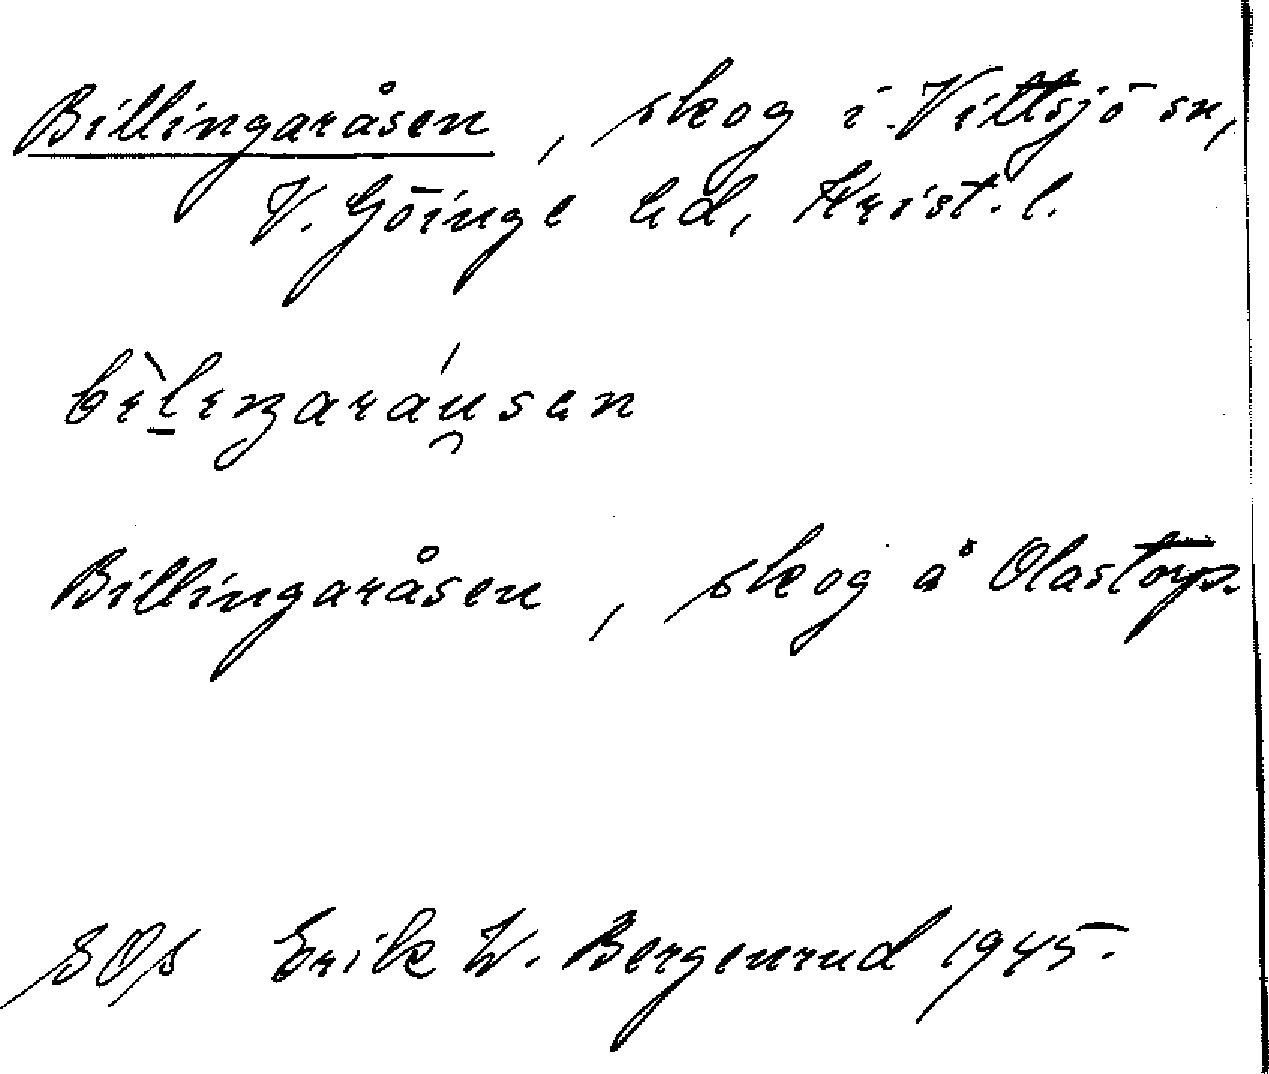 Billingaråsen, skog i Vittsjö sn,
V. Göinge hd, Krist. l.
bìlıŋaráu̯san
Billingaråsen, skog å Olastorp.
SOs Erik W. Bergenrud 1945.